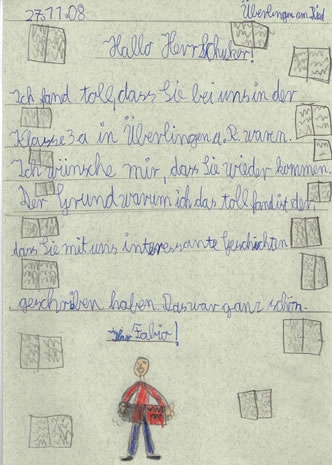 27.11.08 Überlingen am Ried
Hallo Herr Schuker!
Ich fand toll, dass Sie bei uns in der
Klasse 3a in Überlingen a. R. waren.
Ich wünsche mir, das Sie wieder kommen.
Der Grund warum ich das toll fand ist der
dass Sie mit uns interessante Geschichten
geschriben haben. Das war ganz schön.
Fabio!